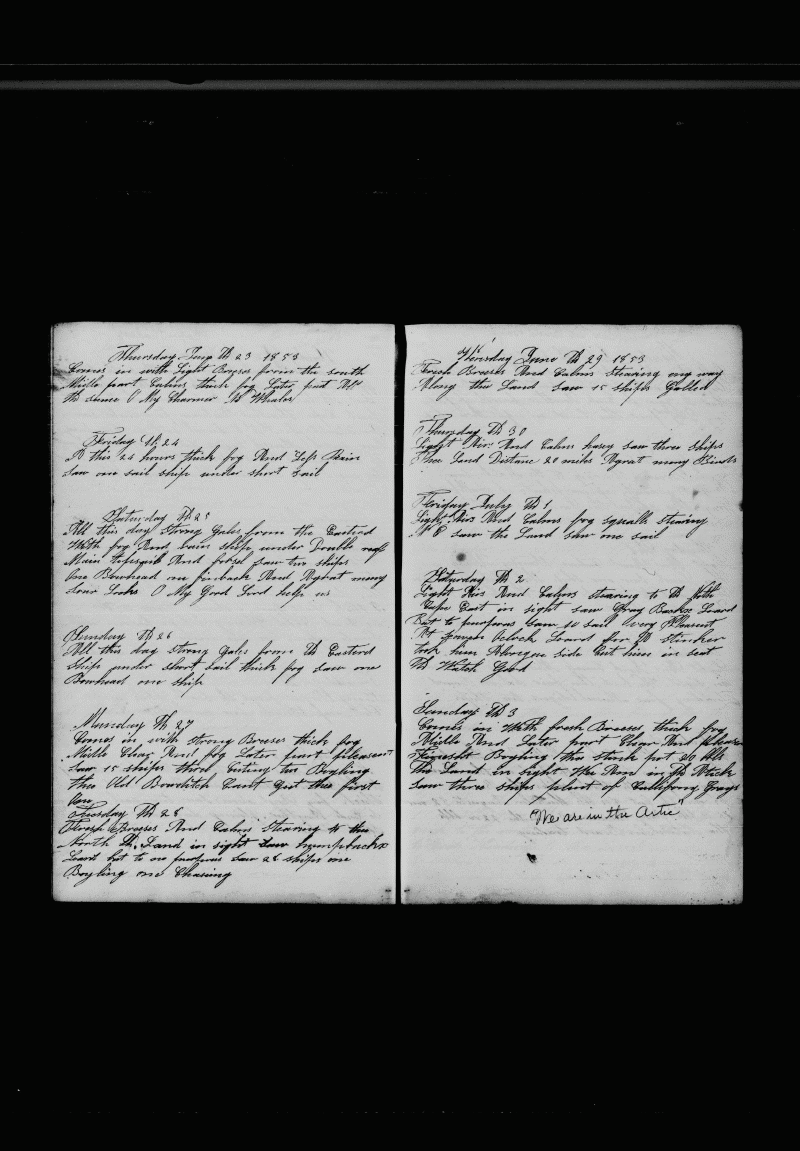 Thursday June Th 23 1853
Comes in with Light Breses from the south
Midle part Calms thick fog Later part All
the same O My Charmer No Whales
Friday Th 24
A this 24 hours thick fog And Rain
Saw one sail ship under short sail
Saturday Th 25
All this day Strong Gales from the Easterd
With fog And rain ship under Double reef
Main topsail And foresail saw two ships
One Bowhead one finback And Agrat many
Sour Looks O My Good Lord help us
Sunday Th 26
All this day strong Gales from Th Easterd
Ship under short sail thick fog saw one
Bowhead one ship
Munday Th 27
Comes in with Strong Breeses thick fog
Midle Clear And fog Later part pleasent
Saw 15 ships three Cuting two Boyling
thee Old Bowditch Cant Get thee first
One
Tuesday Th 28
Fresh Breeses And Calms Stearing to thee
North Th Land in sight Saw humpbacks
Loard but to no purpous saw 28 ships one
Boyling one Chasing
Wensday June Th 29 1853
Fresh Breeses And Calms Stearing ong way
Along thee Land saw 15 ships Galled
Thursday Th 30
Light Airs And Calms hasey saw three ships
Thee Land Distance 20 miles Agrat many Birds
Friday July Th 1
Light Airs And Calms fog squalls stearing
N E saw the Land saw one sail
Saturday Th 2
Light Airs And Calms stearing to Th Noth
Cape East in sight saw Gray Backs Loard
But to purpous saw 10 sail Very Pleasent
At seven Oclock Loard for A stinker
took him Alongue side Cut him in seat
Th Watch Good
Sunday Th 3
Comes in With fresh Breeses thick fog
Midle And Later part Clear And pleasen
Boyling the stink put 20 bbls
The Land in sight
Saw three ships plent of California Grays
"We are in the Artic"